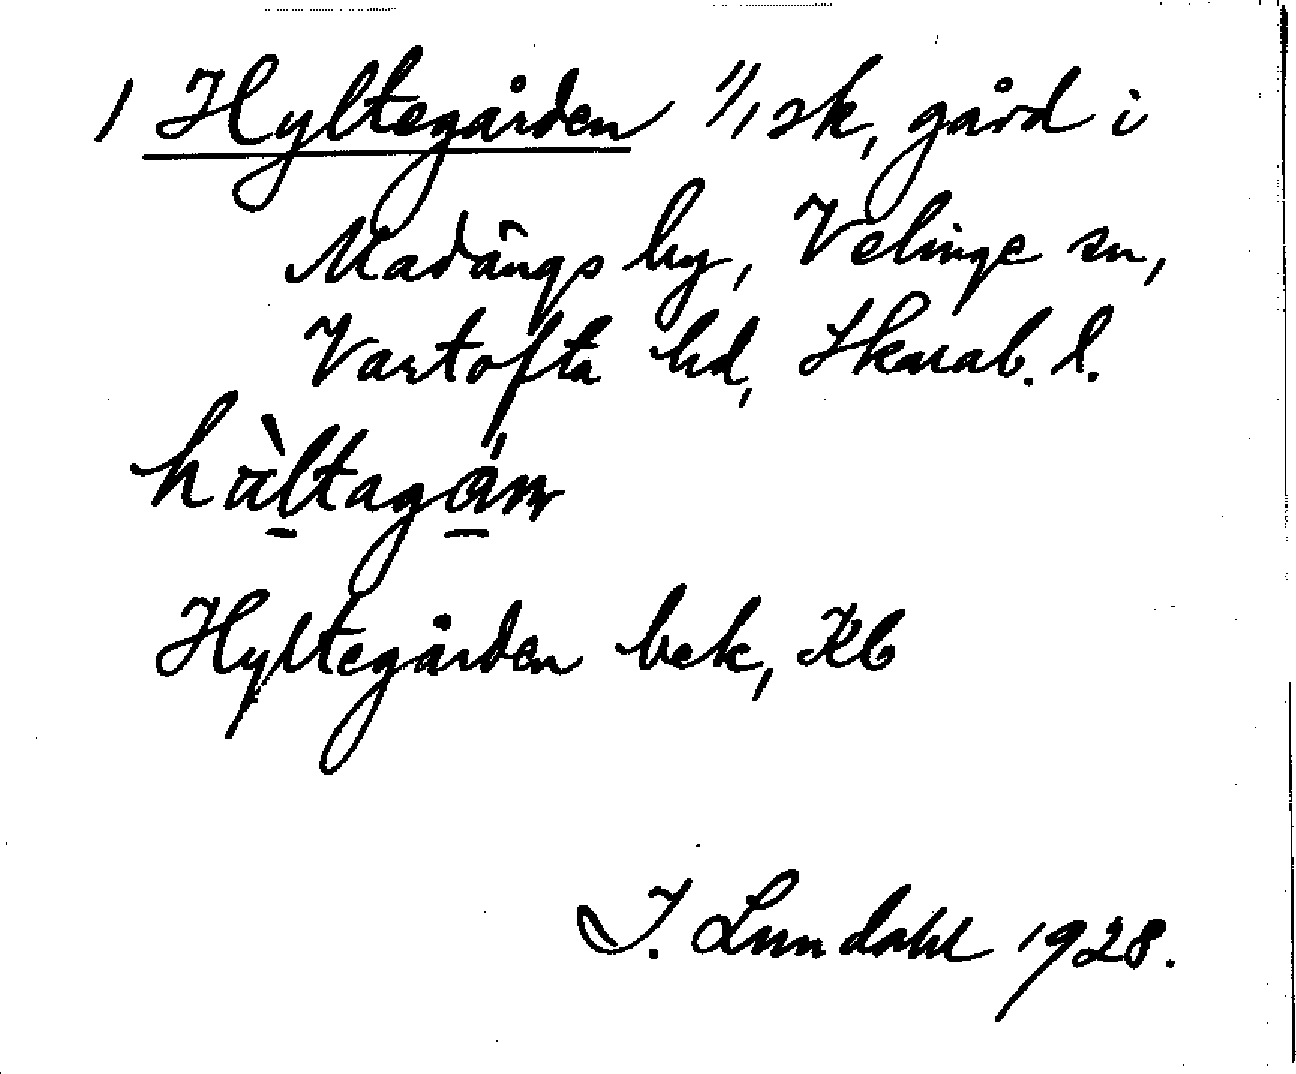 1 Hyltegården 1/1 sk, gård i
Madängs by, Velinge sn,
Vartofta hd, Skarab. l.
Hyltegården bek, Kb
I. Lundahl 1928.